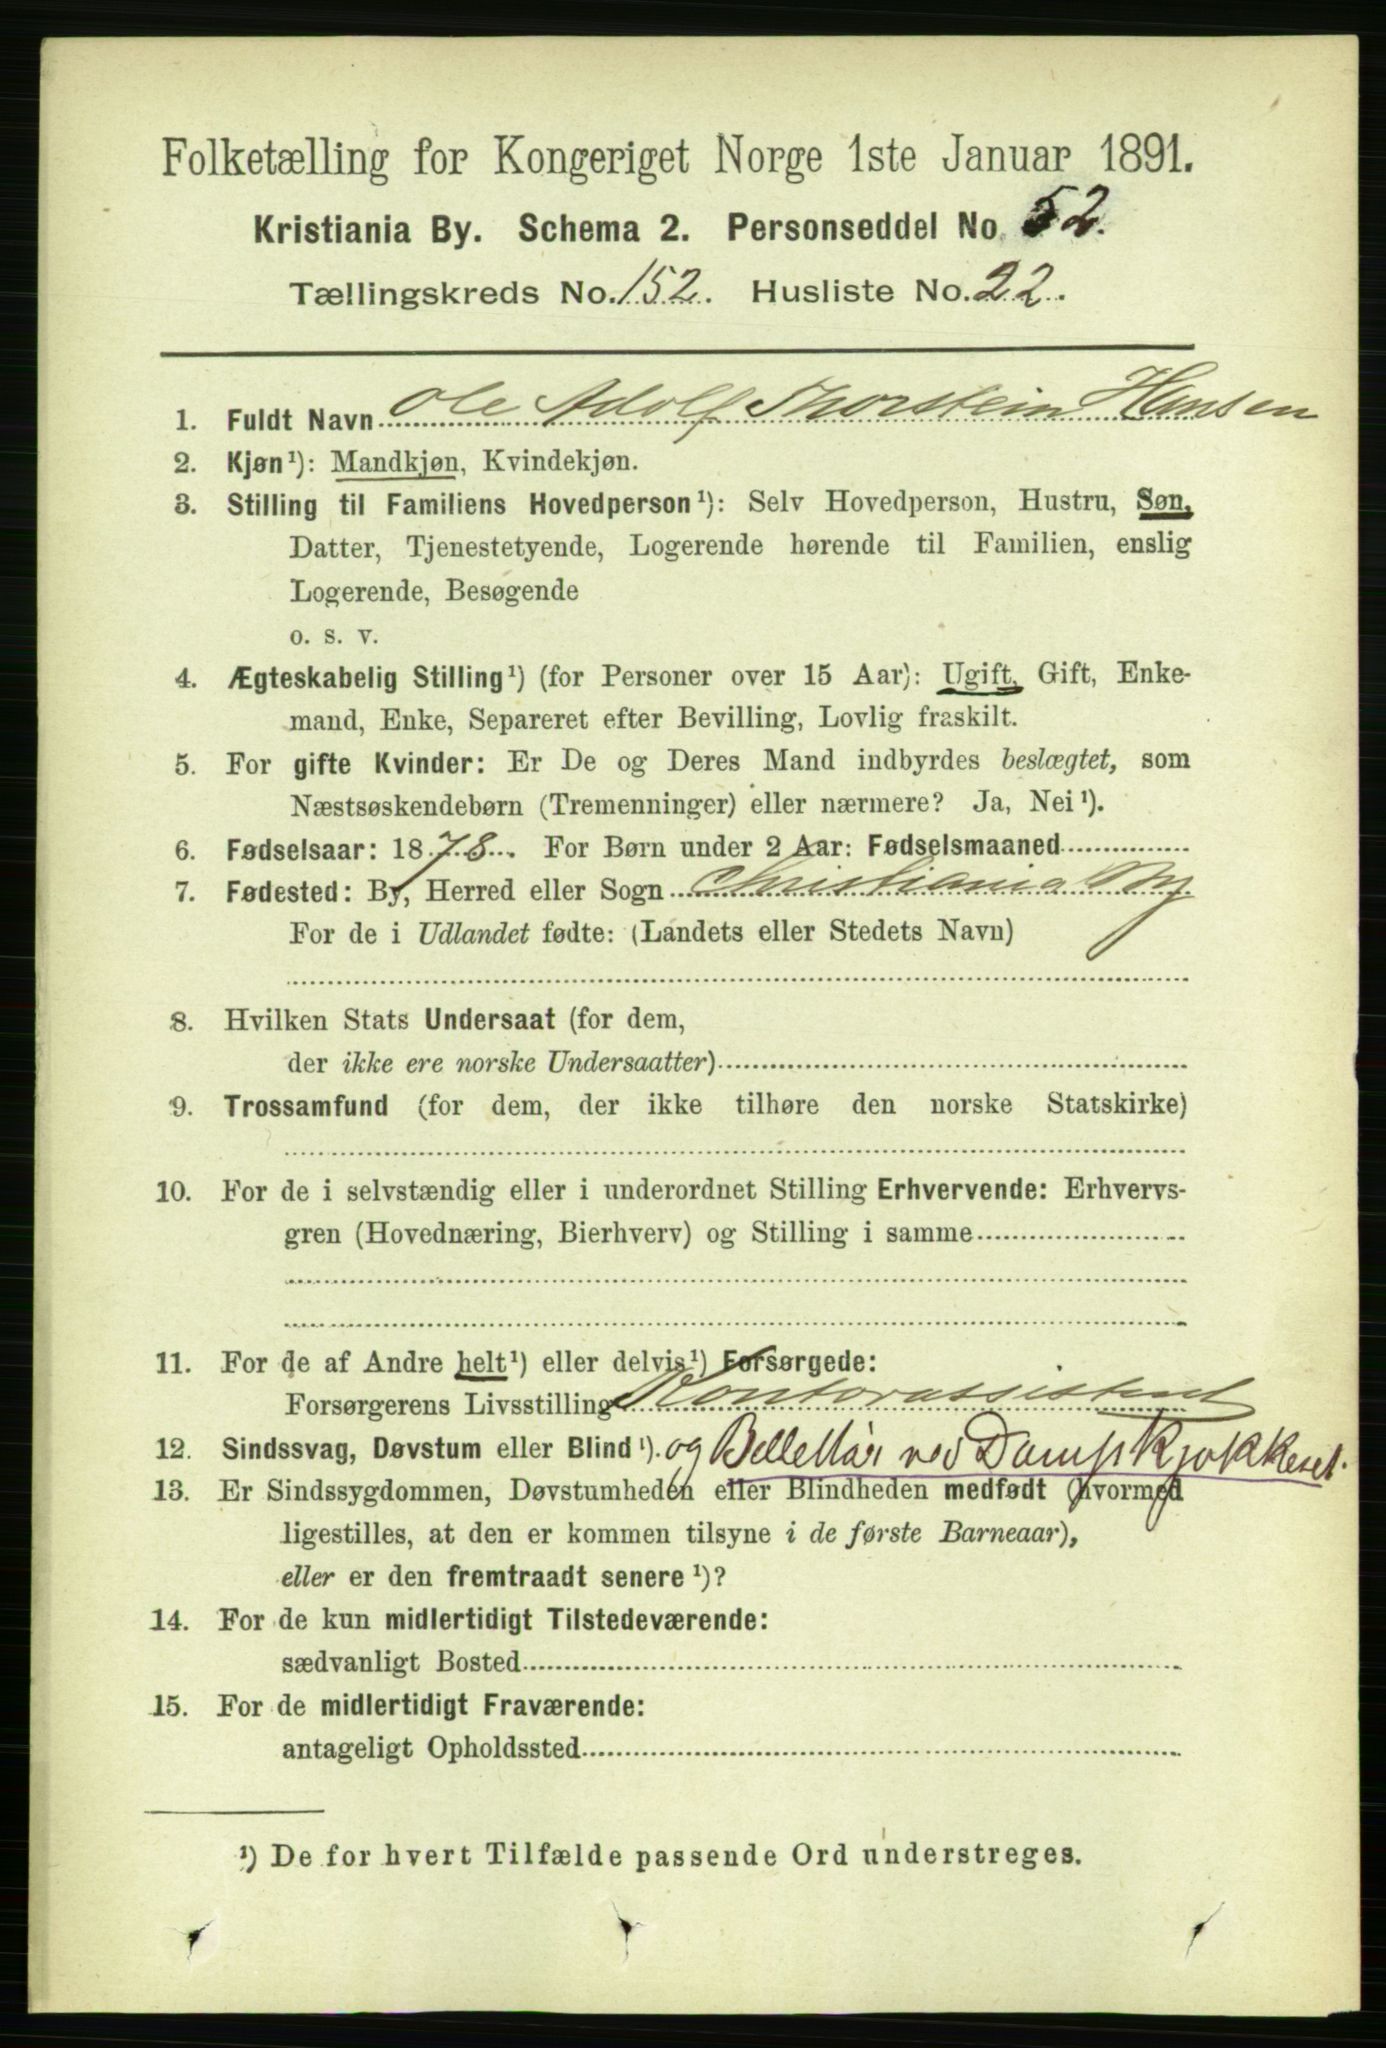 Folketælling for Kongeriget Norge 1ste Januar 1891.
Kristiania By. Schema 2. Personseddel No. 52.
Tællingskreds No. 152. Husliste No. 22.
1. Fuldt Navn Ole Adolf Thorstein Hansen
2. Kjøn¹): Mandkjøn, Kvindekjøn.
3. Stilling til Familiens Hovedperson¹): Selv Hovedperson, Hustru, Søn,
Datter, Tjenestetyende, Logerende hørende til Familien, enslig
Logerende, Besøgende
o. s. v.
4. Ægteskabelig Stilling¹) (for Personer over 15 Aar): Ugift, Gift, Enke-
mand, Enke, Separeret efter Bevilling, Lovlig fraskilt.
5. For gifte Kvinder: Er De og Deres Mand indbyrdes beslægtet, som
Næstsøskendebørn (Tremenninger) eller nærmere? Ja, Nei¹).
6. Fødselsaar: 1878. For Børn under 2 Aar: Fødselsmaaned
7. Fødested: By, Herred eller Sogn Christiania By
For de i Udlandet fødte: (Landets eller Stedets Navn)
8. Hvilken Stats Undersaat (for dem,
der ikke ere norske Undersaatter)
9. Trossamfund (for dem, der ikke tilhøre den norske Statskirke)
10. For de i selvstændig eller i underordnet Stilling Erhvervende: Erhvervs-
gren (Hovednæring, Bierhverv) og Stilling i samme
11. For de af Andre helt¹) eller delvis¹) Forsørgede:
Forsørgerens Livsstilling Kontorassistent
12. Sindssvag, Døvstum eller Blind¹). og Billettør ved Dampkjøkkenet.
13. Er Sindssygdommen, Døvstumheden eller Blindheden medfødt (hvormed
ligestilles, at den er kommen tilsyne i de første Barneaar),
eller er den fremtraadt senere¹)?
14. For de kun midlertidigt Tilstedeværende:
sædvanligt Bosted
15. For de midlertidigt Fraværende:
antageligt Opholdssted
¹) De for hvert Tilfælde passende Ord understreges.